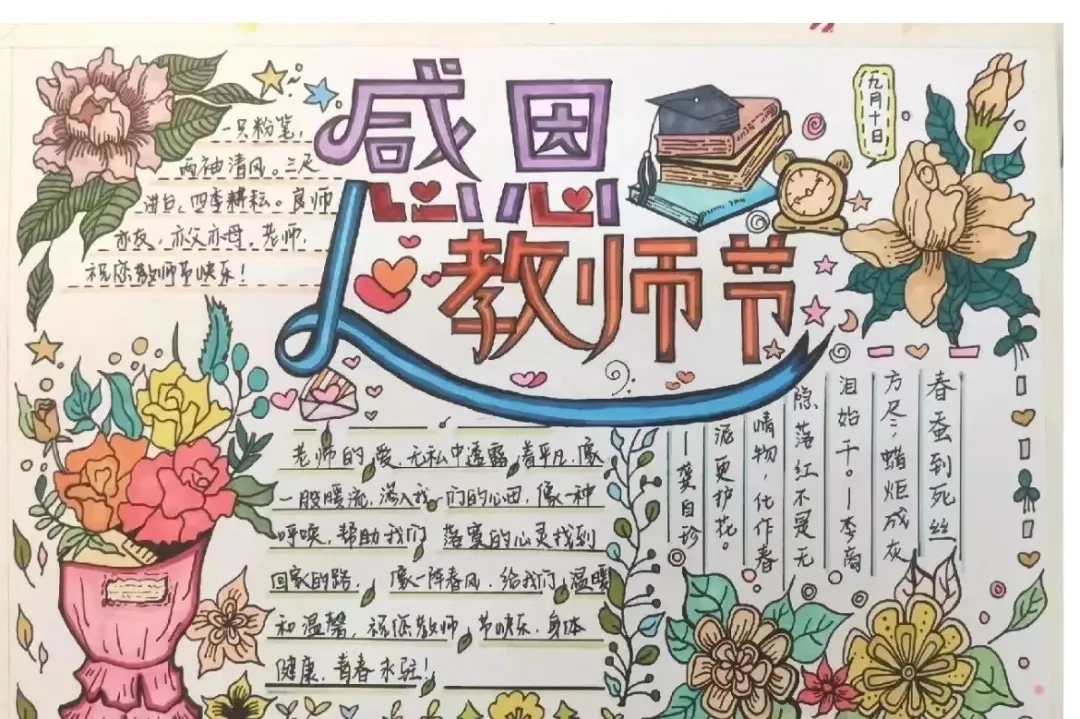 感恩
教师节
九月十日
一只粉笔，
两袖清风。三尺
讲台，四季耕耘。良师
亦友，亦父亦母。老师，
祝您教师节快乐！
老师的爱，无私中透露着平凡，像
一股暖流，渗入我们的心田，像一种
呼唤，帮助我们落寞的心灵找到
回家的路，像一阵春风，给我们温暖
和温馨，祝您教师节快乐，身体
健康，青春永驻！
春蚕到死丝
方尽，蜡炬成灰
泪始干。—李商
隐落红不是无
情物，化作春
泥更护花。
—龚自珍